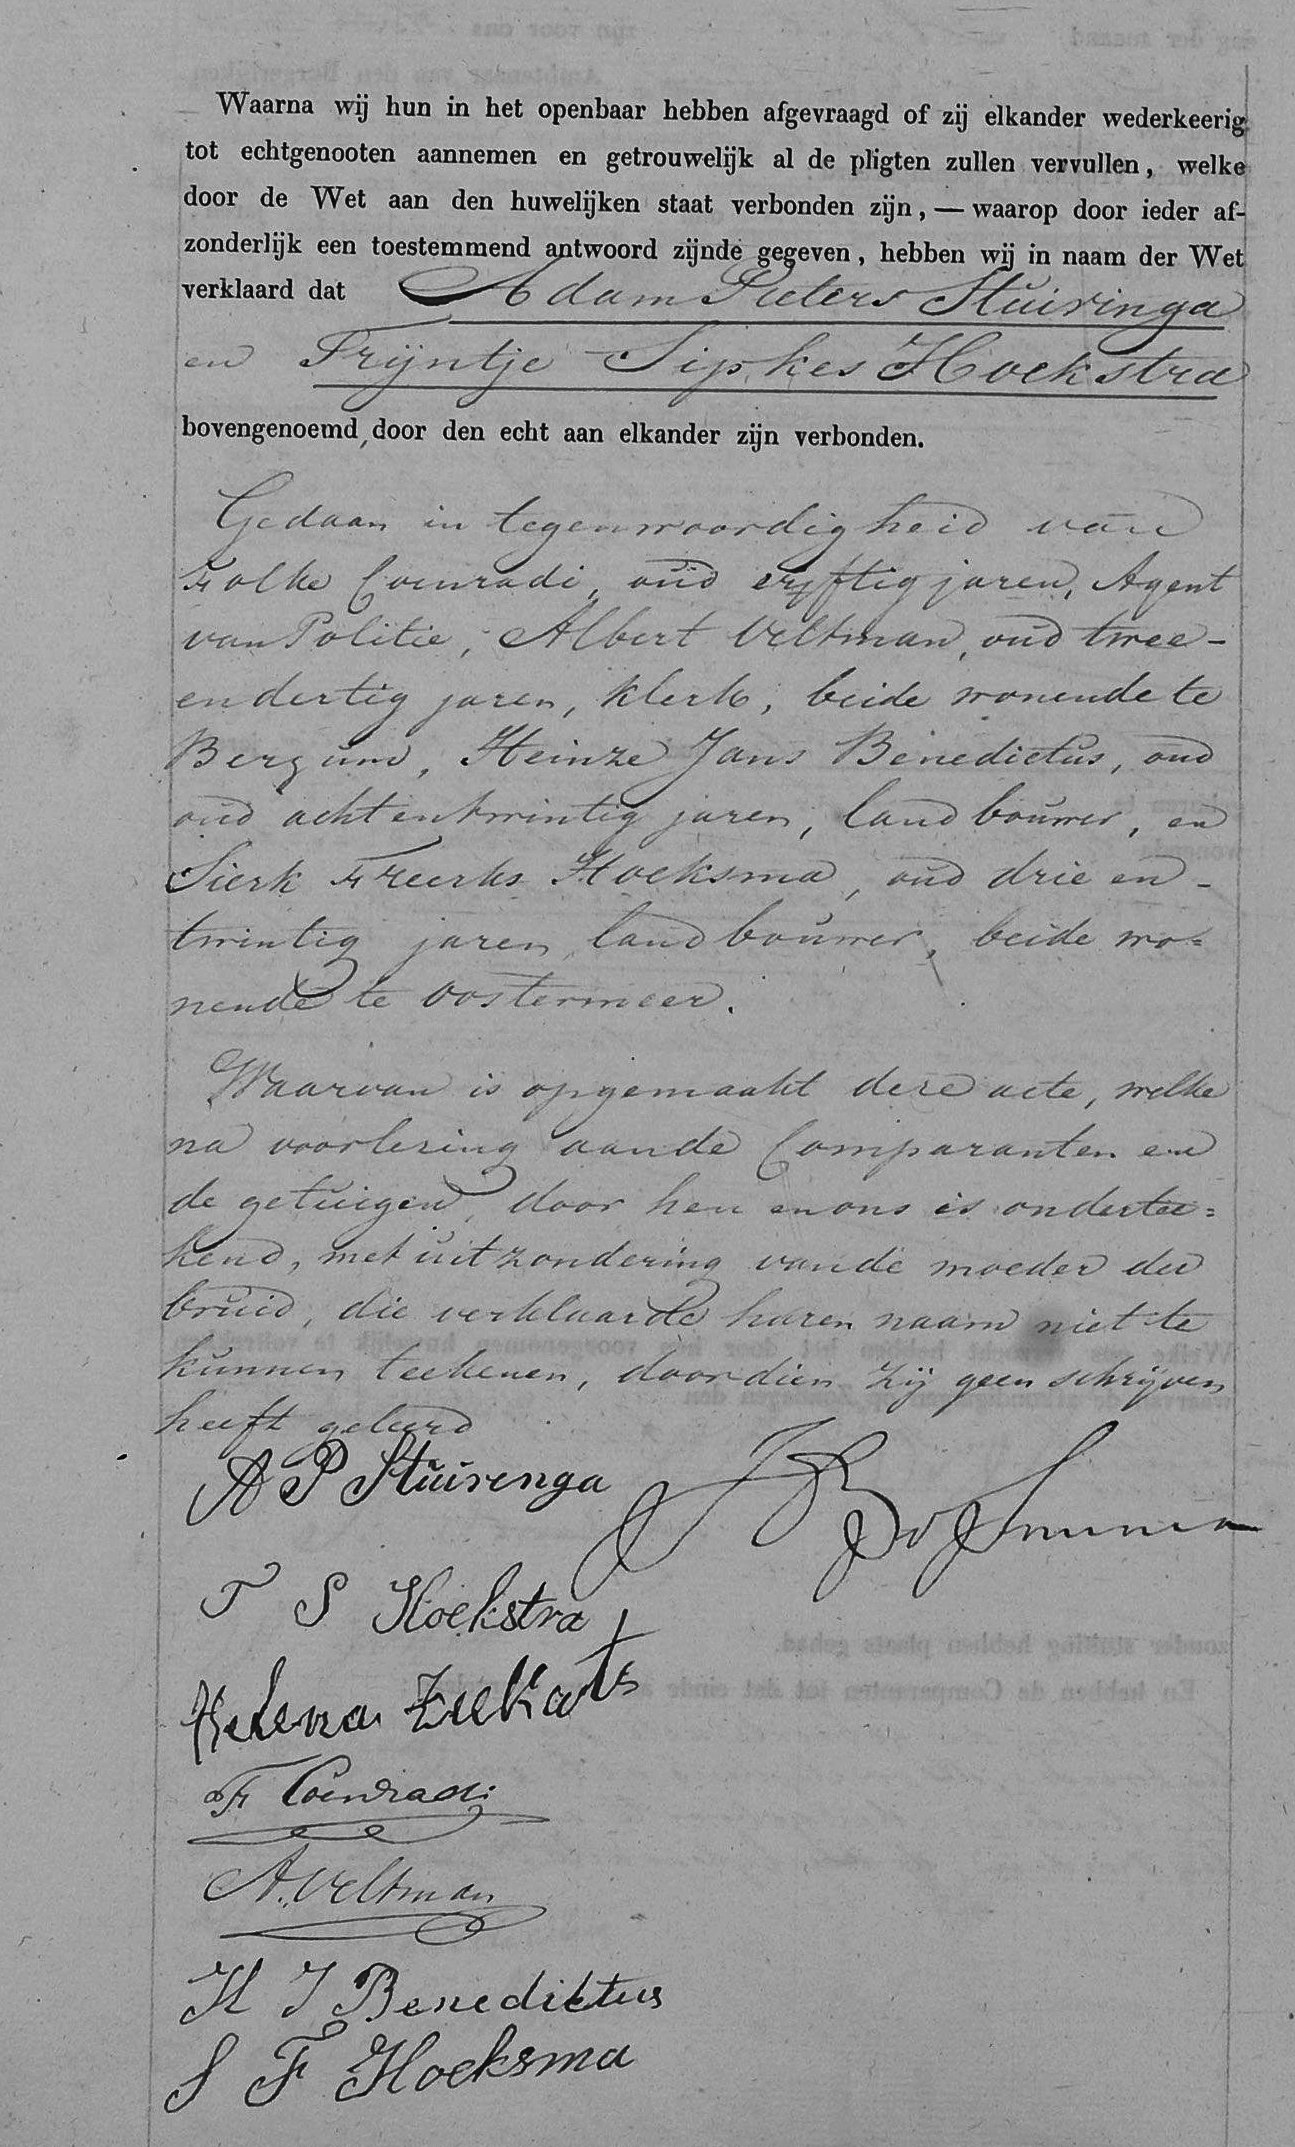 Waarna wij hun in het openbaar hebben afgevraagd of zij elkander wederkeerig
tot echtgenooten aannemen en getrouwelijk al de pligten zullen vervullen, welke
door de Wet aan den huwelijken staat verbonden zijn, — waarop door ieder af-
zonderlijk een toestemmend antwoord zijnde gegeven, hebben wij in naam der Wet
verklaard dat Adam Pieters Stuivinga
en Trijntje Sipkes Hoekstra
bovengenoemd, door den echt aan elkander zijn verbonden.
Gedaan in tegenwoordigheid van
Folke Coenradi, oud vijftig jaren, Agent
van Politie, Albert Veltman, oud twee-
endertig jaren, klerk, beide wonende te
Bergum, Heinze Jans Benedictus, oud
oud achtentwintig jaren, landbouwer, en
Sierk Freerks Hoeksma, oud drie en-
twintig jaren, landbouwer, beide wo=
nende te Oostermeer.
Waarvan is opgemaakt deze acte, welke
na voorlezing aan de Comparanten en
de getuigen, door hen en ons is ondertee=
kend, met uitzondering van de moeder der
bruid, die verklaarde haren naam niet te
kunnen teekenen, doordien zij geen schrijven
heeft geleerd
A P Stuivenga
T S Hoekstra
Helena
F Coenradi
A. Veltman
H J Benedictus
S F Hoeksma